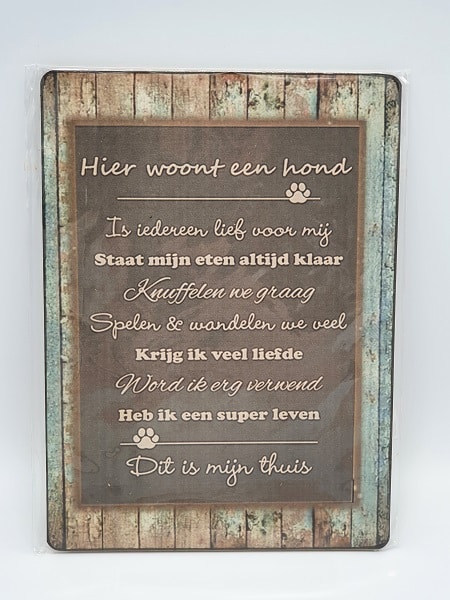 Hier woont een hond
Is iedereen lief voor mij
Staat mijn eten altijd klaar
Knuffelen we graag
Spelen & wandelen we veel
Krijg ik veel liefde
Word ik erg verwend
Heb ik een super leven
Dit is mijn thuis